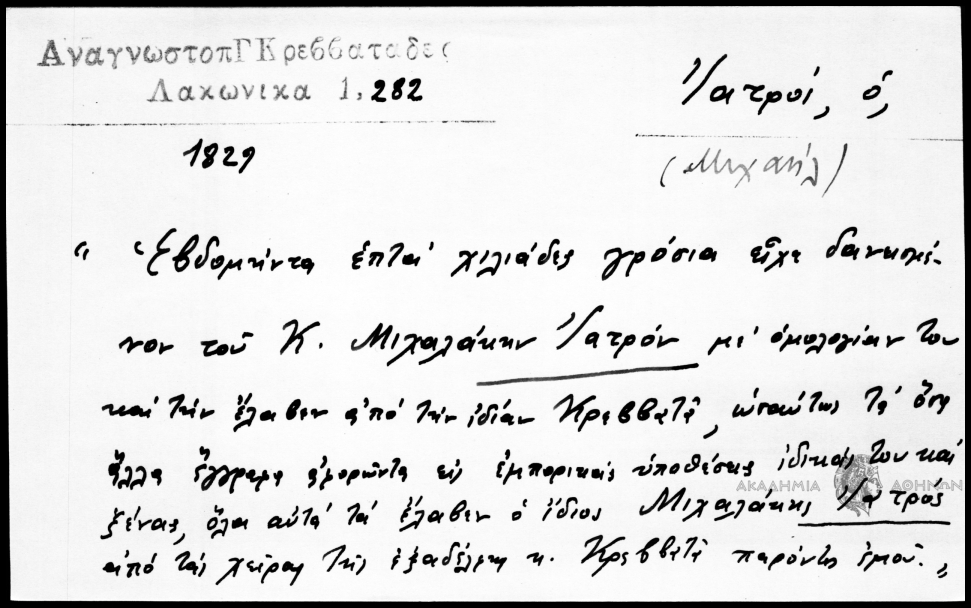 ΑναγνωστοπΓΚρεββαταδες
Λακωνικα 1, 282
Ἰατροί, ὁ,
1829
(Μιχαήλ)
" Ἑβδομήντα ἑπτά χιλιάδες γρόσια εἶχε δανεισμέ-
νον τοῦ Κ. Μιχαλάκην Ἰατρόν με ὁμολογίαν του
καί τήν ἔλαβεν ἀπό τήν ἰδίαν Κρεββατᾶ, ὡσαύτως τά ὅσα
ἄλλα ἔγγραφα ἀφορῶντα εἰς ἐμπορικάς ὑποθέσεις ἰδικάς του καί
ΑΚΑΔΗΜΙΑ ΑΘΗΝΩΝ
ξένας, ὅλα αὐτά τά ἔλαβεν ὁ ἴδιος Μιχαλάκης Ἰατρός
ἀπό τάς χεῖρας τῆς ἐξαδέλφης κ. Κρεββατᾶ παρόντος ἐμοῦ. "